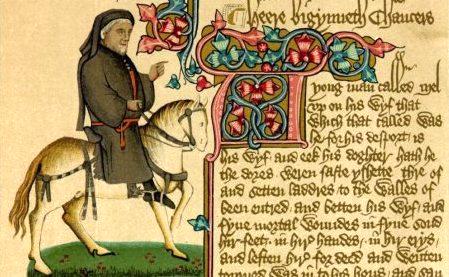 Heere bigynneth Chaucers
yong man called Mel
vp on his Wyf that
Which that called Was
for his desport is
his Wyf and eek his doghter hath he
the dores Weren faste yshette thre of
and setten laddres to the Walles of
been entred and betten his Wyf and
fyue mortal Woundes in fyue sond
hir feet in hir handes in hir erys
and leften hir for deed and Wenten
in to his hous and